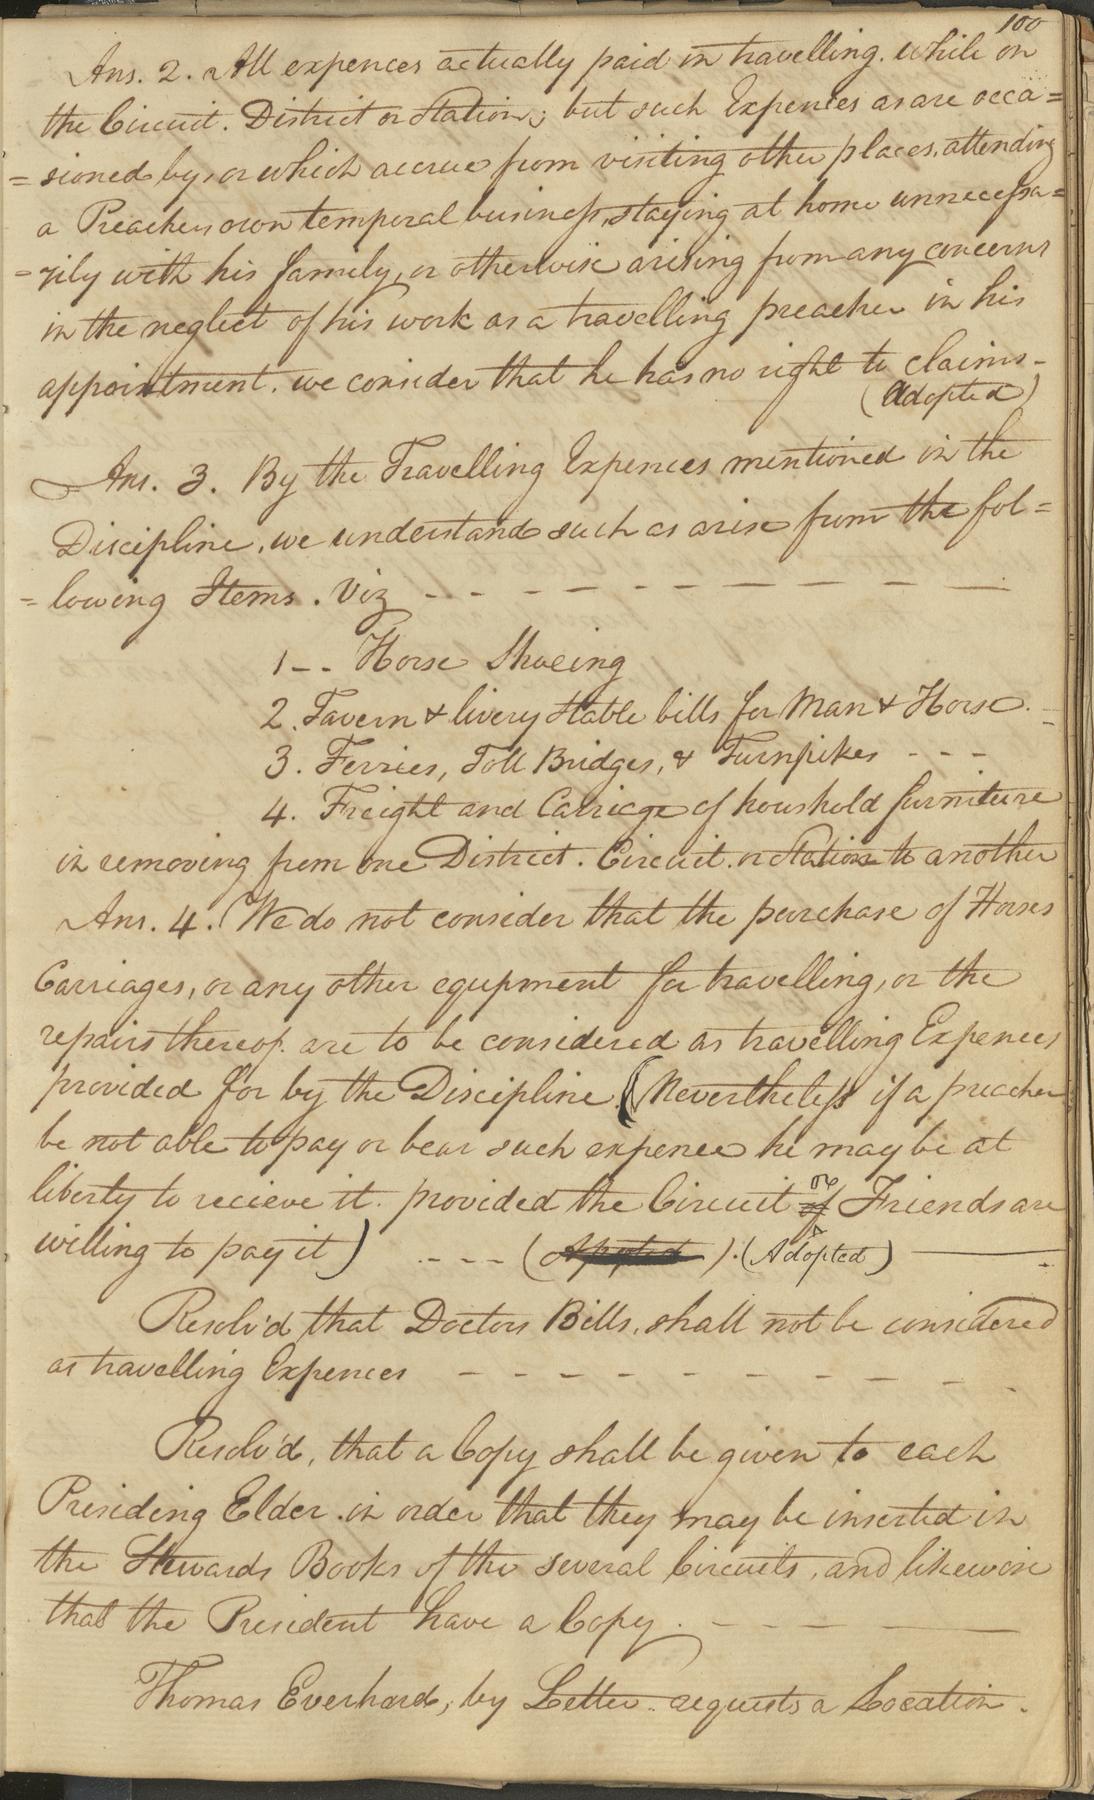 100
Ans. 2. All expences actually paid in travelling. while on
the Circuit. District or Station; but such Expences as are occa=
=sioned by, or which accrue from visiting other places, attending
a Preachers own temporal business, staying at home unnecessa=
=rily with his family, or otherwise arising from any concerns
in the neglect of his work as a travelling preacher in his
appointment. we consider that he has no right to claims-
(Adopted)
Ans. 3. By the Travelling Expences mentioned in the
Discipline, we understand such as arise from the fol=
=lowing Items. Viz - - - - - - - - - -
1-- Horse Shoeing
2. Tavern & livery Stable bills for Man & Horse. -
3. Ferries, Toll Bridges, & Turnpikes - - -
4. Freight and Carriage of houshold furniture
in removing from one District. Circuit. or Station to another
Ans. 4. (We do not consider that the purchase of Horses
Carriages, or any other equpment for travelling, or the
repairs thereof. are to be considered as travelling Expences
provided for by the Discipline. (Nevertheless if a preacher
be not able to pay or bear such expence he may be at
liberty to recieve it. provided the Circuit of or Friends are
willing to pay it) - - - - ( ). (Adopted)
Resolv'd that Doctors Bills, shall not be considered
as travelling Expences - - - - - - - - - -
Resolv'd, that a Copy shall be given to each
Presiding Elder. in order that they may be inserted in
the Stewards Books of the several Circuits, and likewise
that the President have a Copy. - - - - -
Thomas Everhard, by Letter. requests a Location.